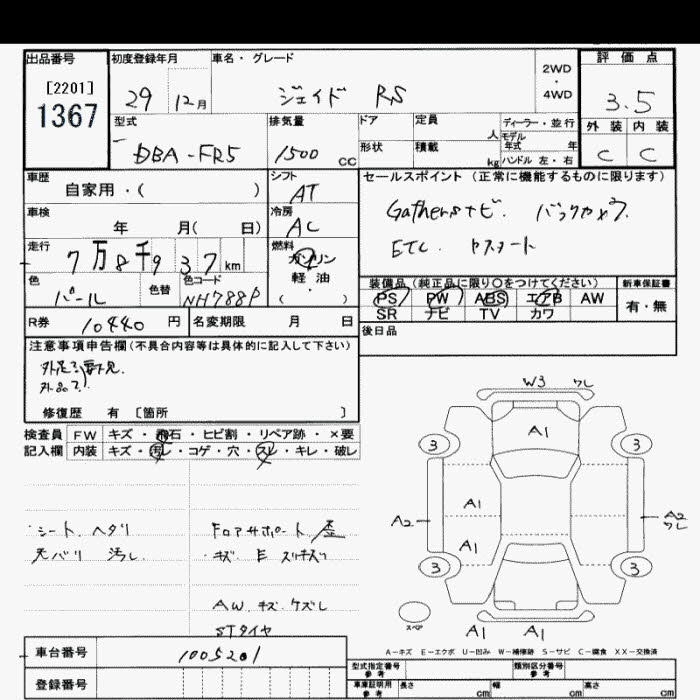 出品番号 初度登録年月 車名・グレード 評価点
[2201]
1367
29 12月 ジェイド RS 2WD・4WD 3.5
外装 内装
C C
型式 排気量 ドア 定員 人 ディーラー・並行
モデル年式 年
DBA-FR5 1500 CC 形状 積載 kg ハンドル 左・右
車歴 シフト セールスポイント (正常に機能するものに限ります)
自家用・( ) AT
車検 冷房 Gathersナビ. バックカメラ.
年 月( 日) AC
走行 燃料 ETC.
7万8千937km ガソリン
軽油
( ・ )
色 色替 色コード 装備品 (純正品に限り○をつけてください) 新車保証書
パール NH788P PS PW ABS エアB AW 有・無
SR ナビ TV カワ
R券 10440 円 名変期限 月 日 後日品
注意事項申告欄(不具合内容等は具体的に記入して下さい)
修復歴 有 〔箇所 〕
検査員 FW キズ・飛石・ヒビ割・リペア跡・×要
記入欄 内装 キズ・汚レ・コゲ・穴・スレ・キレ・破レ
W3 ワレ
A1
3 3
A2 A1 A2 ワレ
A1
3 3
スペア A1 A1
シート ヘタリ
毛バリ 汚レ
Fロアサポート 歪
キズ E スリキズ
AW キズ ケズレ
STタイヤ
A-キズ E-エクボ U-凹み W-補修跡 S-サビ C-腐食 XX-交換済
車台番号 1005201
型式指定番号 参考 類別区分番号 参考
登録番号 車庫証明用 参考 長さ cm 幅 cm 高さ cm